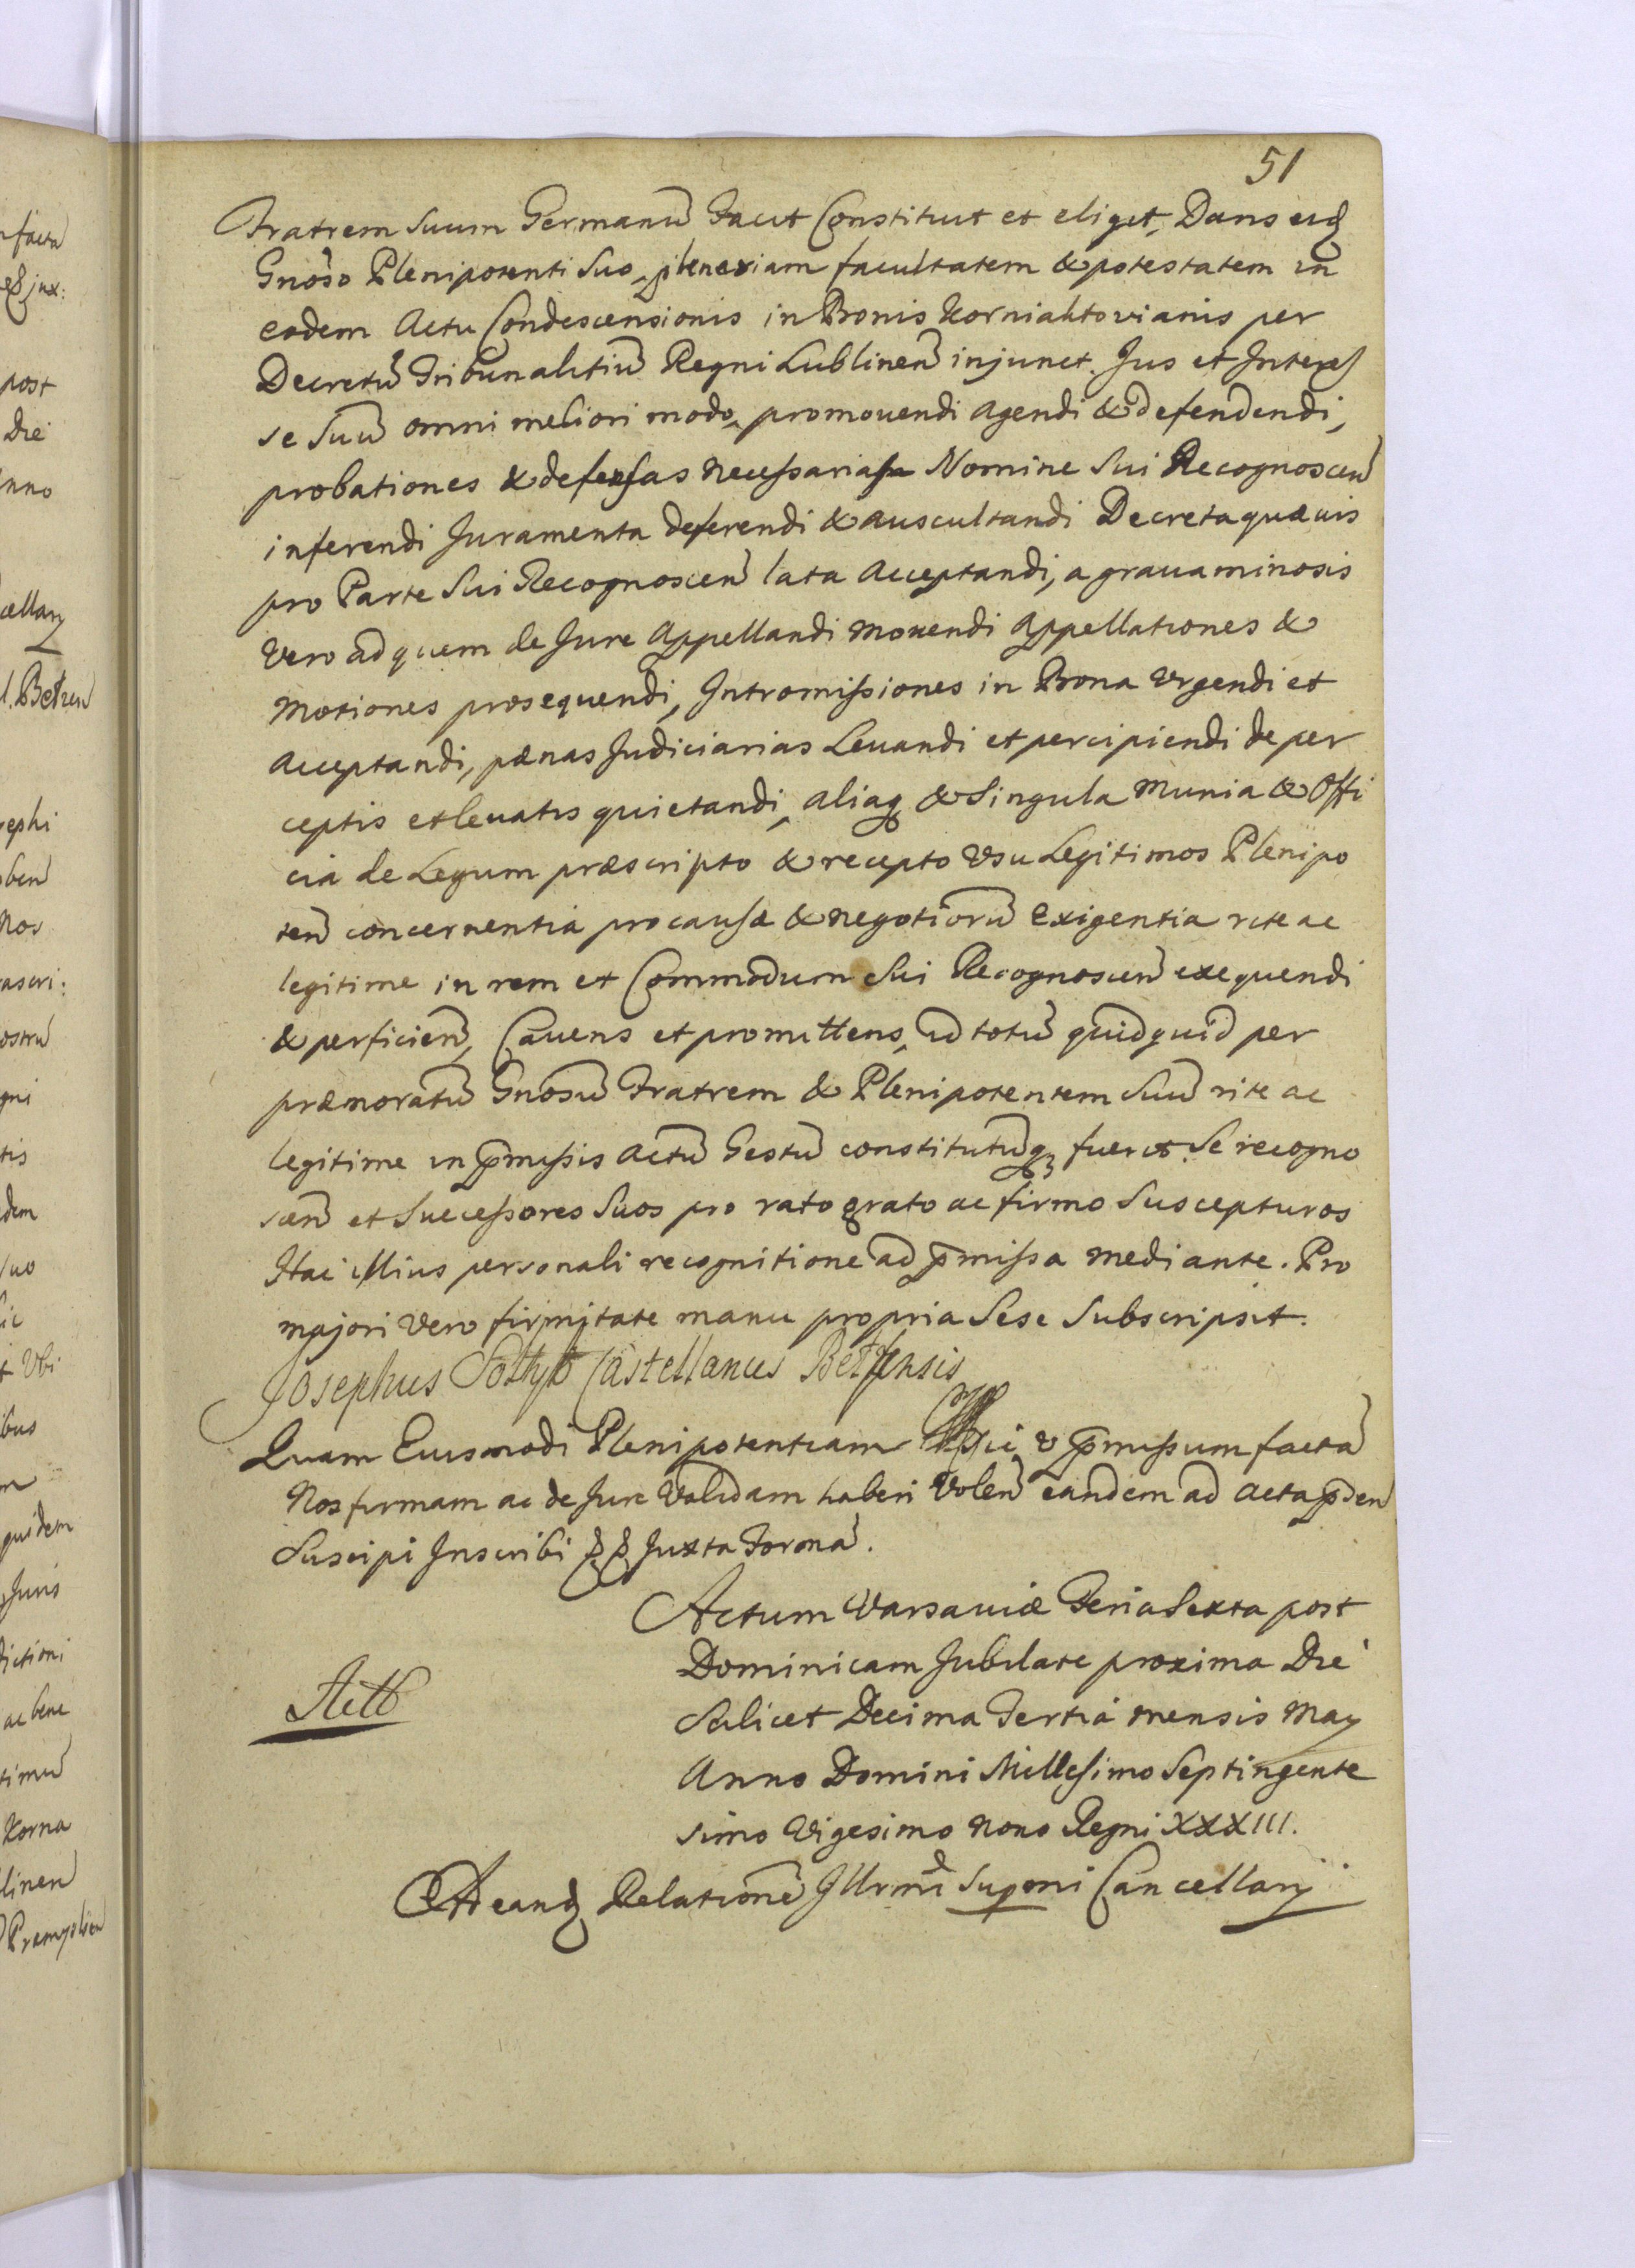 51
Fratrem Suum Germanũ Facit Constituit et eliget, Dans eid
Gnõso Plenipotenti Suo, plenariam facultatem & potestatem in
eodem Actu Condescensionis in Bonis Korniaktovianis per
Decretũ Tribunalitiũ Regni Lublinen̄ injunct. Jus et Interes
se Suũ omni meliori modo, promouendi agendi & defendendi,
probationes & defensas necessarias Nomine Sui Recognoscen̄
inferendi Juramenta deferendi & auscultandi Decreta quæuis
pro Parte Sui Recognoscen̄ lata Acceptandi, a grauaminosis
Vero ad quem de Jure Appellandi mouendi Appellationes &
motiones prosequendi, Intromissiones in Bona Vrgendi et
Acceptandi, pænas Judiciarias Leuandi et percipiendi de per
ceptis et leuatis quietandi, aliaq & Singula Munia & Offi
cia de Legum præscripto & recepto Vsu Legitimos Plenipo
ten̄ concernentia pro causæ & negotiorũ Exigentia rite ac
legitime in rem et Commodum Sui Recognoscen̄ exequendi
& perficien̄, Cauens et promittens, id totũ quidquid per
prænoratũ Gnosũ Fratrem & Plenipotentem Suũ rite ac
legitime in p̄missis actũ Gestũ constitutũq fuerit. Se recogno
scen̄ et Successores Suos pro rato grato ac firmo Suscepturos
Hac illius personali recognitione ad p̄missa mediante. Pro
majori Vero firmitate manu propria Sese Subscripsit.
Josephus Pothÿ Castellanus Betzensis
Quam Eiusmodi Plenipotentiam p̄missum factã
Nos firmam ac de Jure Validam haberi Volen̄ eandem ad acta p̄den
Suscipi Inscribi Juxta Formã.
Actum Varsauiæ Feria Sexta post
Dominicam Jubilate proxima Die
Scilicet Decima Tertia mensis May
Anno Domini Millesimo Septingente
simo Vigesimo nono Regni XXXIII.
Ad eand Relationẽ Illrmi Supmi Cancellarÿ